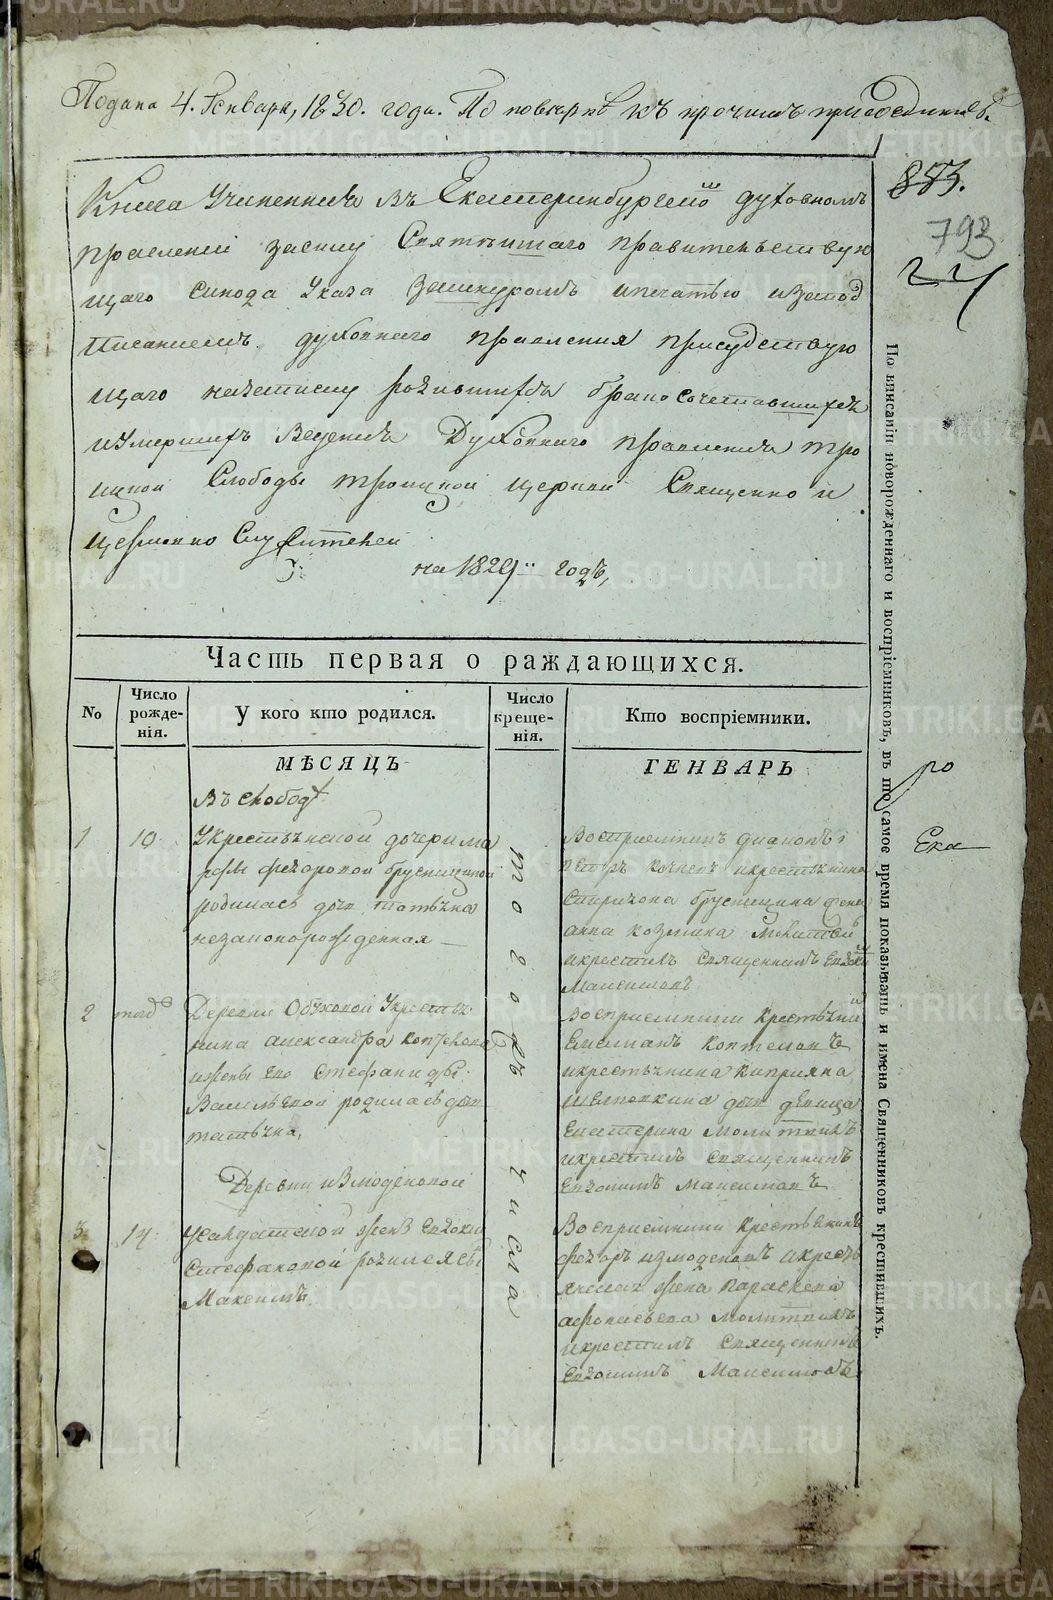 Подана 4. Генваря, 1830. года. По поверке къ прочимъ присоединить.
883.
793
Книга Учиненная Въ Екатеринбургскомъ духовномъ
правлении засилу Святейшаго правительствую
щаго синода Указа Зашнуромъ ипечатью изапод
писаниемъ духовнаго правления присудствую
щаго назаписку родившихся бракосочетавшихся
иумершихъ Ведения Духовнаго правления тро
ицкой Слободы троицкой церкви Священно и
церковно Служителей
на 1829 годъ,
Часть первая о раждающихся.
No
Число рожде-нія.
У кого кто родился.
Число креще-нія.
Кто воспріемники.
МѢСЯЦЪ
ГЕНВАРЬ
Въ слободѣ
1
10
Укрестьянской дочери ма
рфы федоровой брусницыной
родилась дочь татьяна
незаконорожденная
Восприемникъ диаконъ
петръ икрестьянина
спиридона брусницына жена
анна козмина молитвой
икрестилъ священникъ Евдокимъ
Максимовъ
2
Деревни Обуховой Укрестья
нина александра коптелова
ижены его Стефаниды
Васильевой родилась дочь
татьяна,
Восприемники крестьянинъ
Емелианъ коптеловъ
икрестьянина киприяна
дочь девица
Екатерина молитвилъ
икрестилъ священникъ
Евдокимъ Максимовъ
Деревни измоденовой
3
14
Усолдатской жены Евдокии
Стефановой родился сынъ
Максимъ
Восприемники Крестьянинъ
федоръ измоденовъ икресть
янская жена параскева
афонасьева молитвилъ
икрестилъ священникъ
Евдокимъ Максимовъ
того жъ числа
По вписаніи новорожденнаго и воспріемниковъ, въ то самое время показывать и имена Священниковъ крестившихъ.
ро
Ека
METRIKI.GASO-URAL.RU